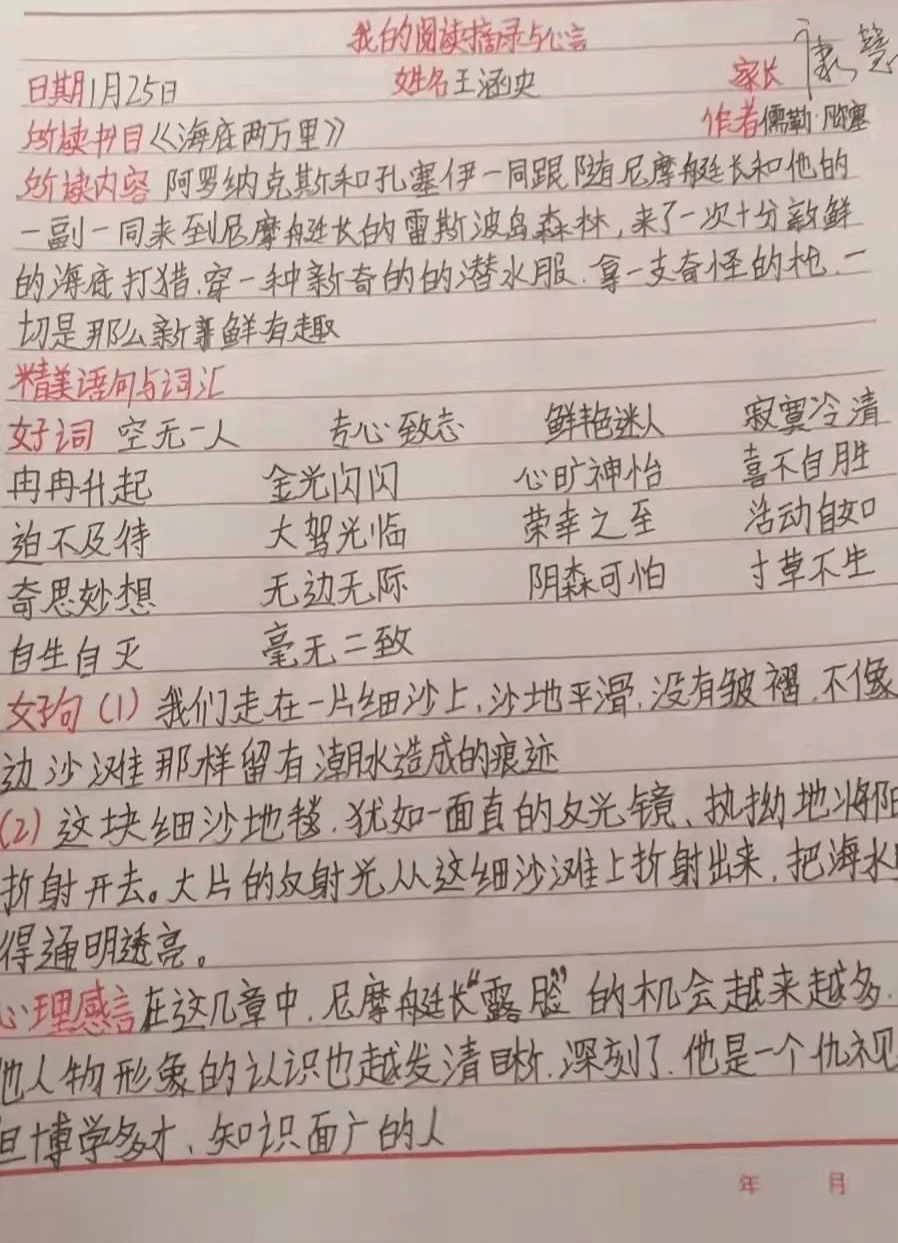 我的阅读摘录与心言
日期1月25日 姓名王涵史 家长 康慧
所读书目《海底两万里》 作者儒勒·凡尔塞
所读内容 阿罗纳克斯和孔塞伊一同跟随尼摩艇长和他的
一副一同来到尼摩艇长的雷斯波岛森林,来了一次十分新鲜
的海底打猎.穿一种新奇的的潜水服.拿一支奇怪的枪.一
切是那么新鲜有趣
精美语句与词汇
好词 空无一人 专心致志 鲜艳迷人 寂寞冷清
冉冉升起 金光闪闪 心旷神怡 喜不自胜
迫不及待 大驾光临 荣幸之至 活动自如
奇思妙想 无边无际 阴森可怕 寸草不生
自生自灭 毫无二致
好句(1)我们走在一片细沙上,沙地平滑.没有皱褶.不像
边沙滩那样留有潮水造成的痕迹
(2)这块细沙地毯.犹如一面真的反光镜、执拗地将阳
折射开去。大片的反射光从这细沙滩上折射出来.把海水
得通明透亮。
心理感言在这几章中.尼摩艇长“露脸”的机会越来越多.
他人物形象的认识也越发清晰.深刻了.他是一个仇视
但博学多才、知识面广的人
年 月